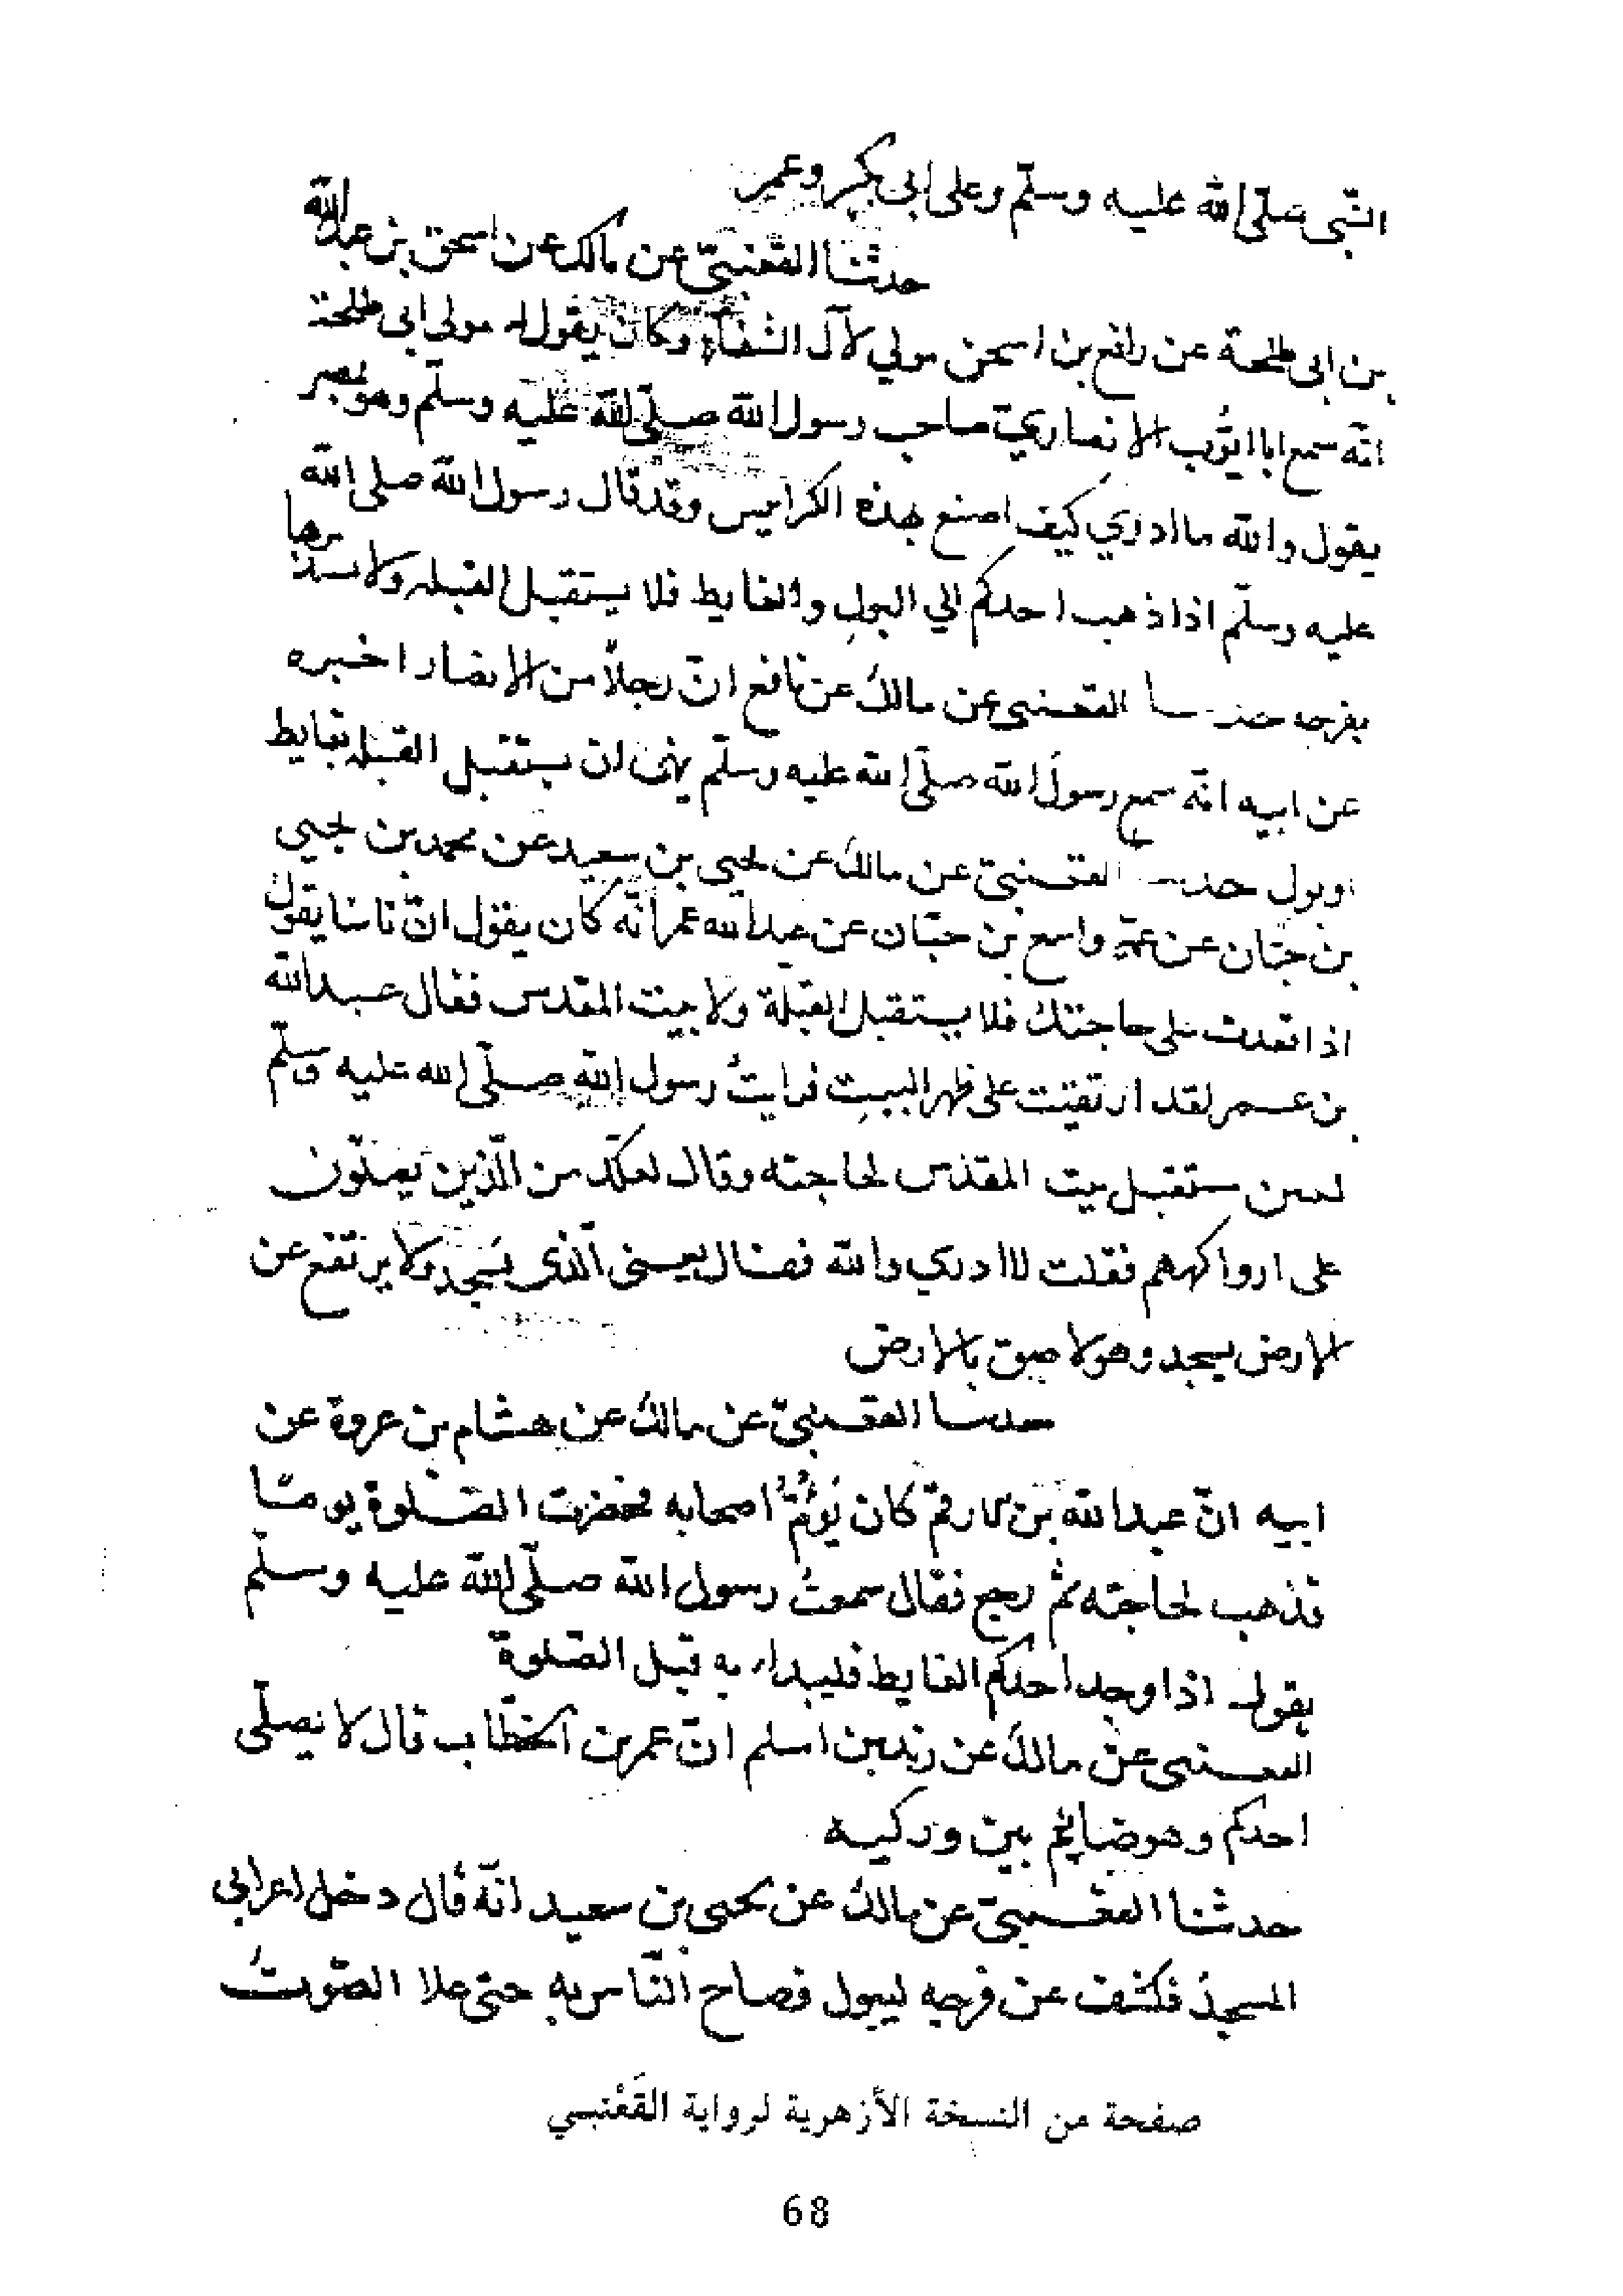 النّبى صلّى الله عليه وسلّم وعلى ابى بكر وعمر
حدثنا القعنبىّ عن مالك عن اسحق بن عبد الله
بن ابى طلحة عن رافع بن اسحق مولي لآل الشفاء وكان يقول له مولى ابى طلحة
انّه سمع ابا ايّوب الانصاريّ صاحب رسول الله صلّى الله عليه وسلّم وهو بمصر
يقول والله ما ادري كيف اصنع بهذه الكرابيس وقد قال رسول الله صلى الله
عليه وسلّم اذا ذهب احدكم الي البول والغايط فلا يستقبل القبله ولا يستدبرها
بفرجه حدثنا القعنبى عن مالك عن نافع انّ رجلًا من الانصار اخبره
عن ابيه انّه سمع رسول الله صلّى الله عليه وسلّم ينهى ان يستقبل القبله بغايط
او بول حدثنا القعنبىّ عن مالك عن يحيى بن سعيد عن محمد بن يحيى
بن حبّان عن عمّه واسع بن حبّان عن عبد الله عمر انّه كان يقول انّ ناسا يقول
اذا قعدت على حاجتك فلا يستقبل القبلة ولا بيت المقدس فقال عبد الله
بن عمر لقد ارتقيت على ظهر البيت فرايتُ رسول الله صلّى الله عليه وسلّم
مستقبل بيت المقدس لحاجته وقال لعلّك من الّذين يصلّون
على اوراكهم فقلت لا ادري والله فقال يعنى الّذى يسجد ولا يرتفع عن
الارض يسجد وهو لاصق بالارض
حدثنا القعنبىّ عن مالك عن هشام بن عروة عن
ابيه انّ عبد الله بن الارقم كان يؤمّ اصحابه فحضرت الصّلوة يومًا
فذهب لحاجته ثم رجع فقال سمعتُ رسول الله صلّى الله عليه وسلّم
يقول اذا وجد احدكم الغايط فليبدا به قبل الصّلوة
القعنبى عن مالك عن زيد بن اسلم انّ عمر بن الخطّاب قال لا يصلّى
احدكم وهو ضامّ بين وركيه
حدثنا القعنبىّ عن مالك عن يحيى بن سعيد انّه قال دخل اعرابى
المسجد فكشف عن فرجه ليبول فصاح النّاس به حتى علا الصّوت
صفحة من النسخة الأزهرية لرواية القَعْنبي
68